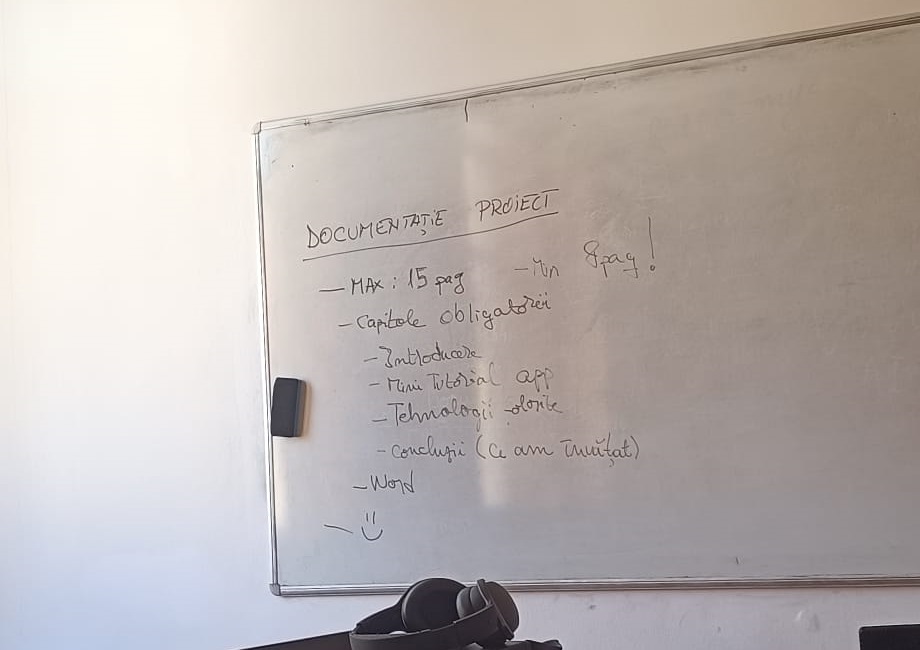 DOCUMENTAȚIE PROIECT
- MAX : 15 pag - Min 8 pag !
- Capitole obligatorii
- Introducere
- Mini Tutorial app
- Tehnologii folosite
- concluzii (Ce am învățat)
- Word